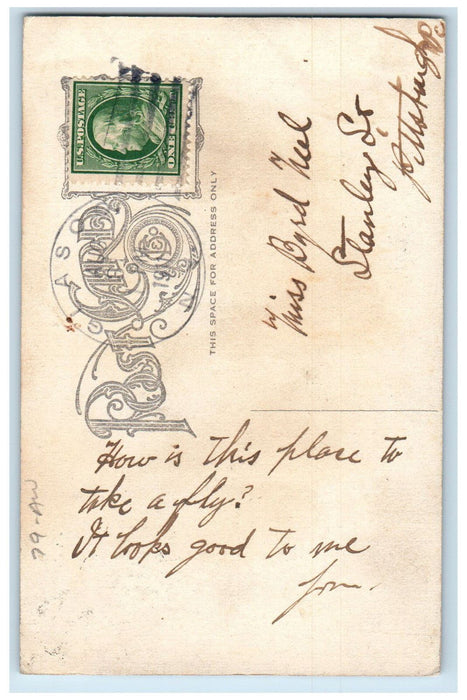 U.S. POSTAGE
ONE
Post Card
THIS SPACE FOR ADDRESS ONLY
Miss Byrd Neel
Stanley St
Pittsburgh Pa
How is this place to
take a fly?
It looks good to me
79-AW